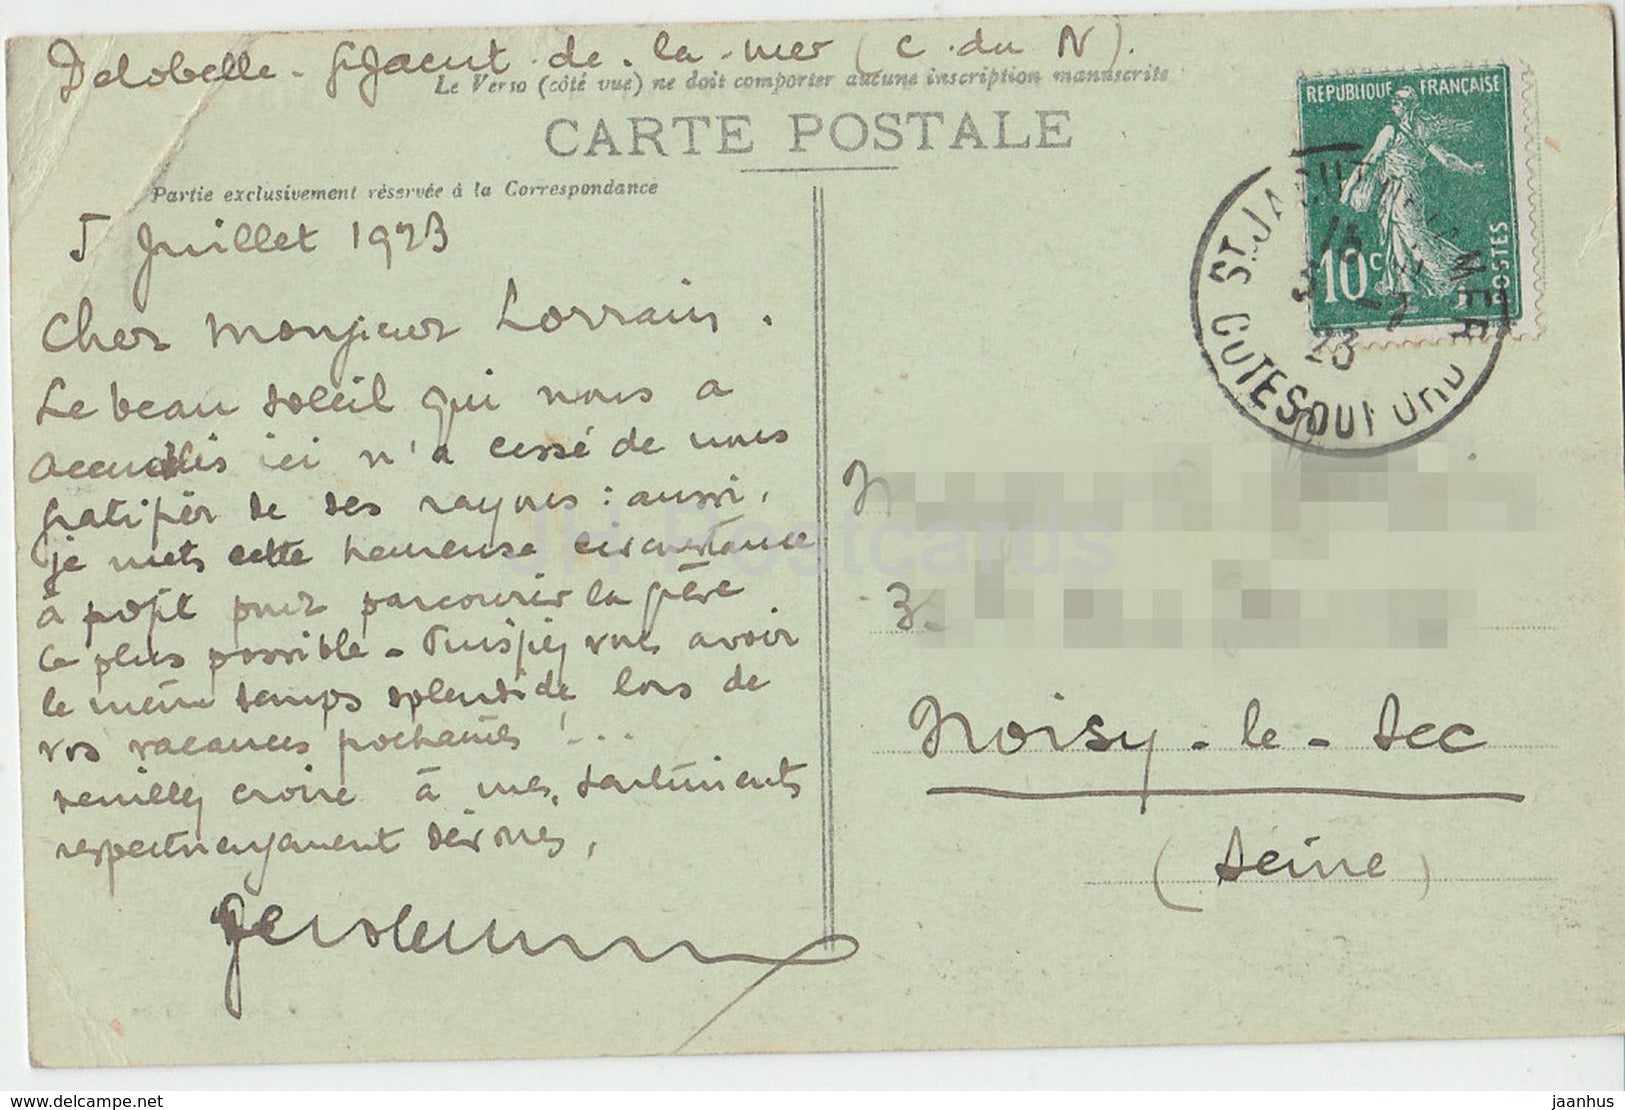 Delobelle - St Jacut - de - la - mer (C. du N).
Le Verso (côté vue) ne doit comporter aucune inscription manuscrite
CARTE POSTALE
Partie exclusivement réservée à la Correspondance
5 Juillet 1923
Cher Monsieur Lorrain.
Le beau soleil qui nous a
accueillis ici n'a cessé de nous
gratifier de ses rayons : aussi,
je mets cette heureuse circonstance
à profit pour parcourir la grève
le plus possible - Puissiez vous avoir
le même temps splendide lors de
vos vacances prochaines ! ...
Veuillez croire à mes sentiments
respectueusement dévoués,
REPUBLIQUE FRANÇAISE
10c
POSTES
ST. JA MER
15
5 - 7
23
COTES DU NORD
Noisy - le - Sec
(Seine)
JH Postcards
www.delcampe.net
jaanhus